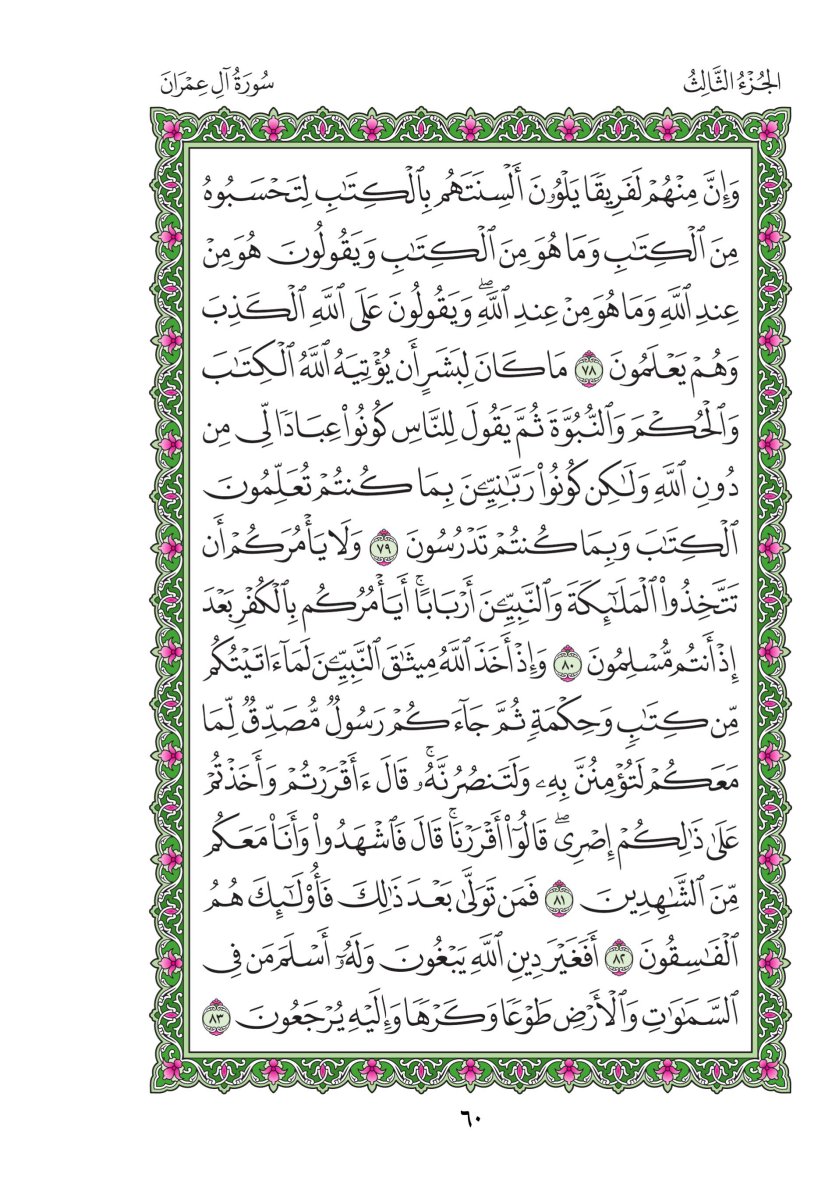 الجُزْءُ الثَّالِثُ
سُورَةُ آلِ عِمْرَانَ
وَإِنَّ مِنْهُمْ لَفَرِيقًا يَلْوُۥنَ أَلْسِنَتَهُم بِٱلْكِتَٰبِ لِتَحْسَبُوهُ
مِنَ ٱلْكِتَٰبِ وَمَا هُوَ مِنَ ٱلْكِتَٰبِ وَيَقُولُونَ هُوَ مِنْ
عِندِ ٱللَّهِ وَمَا هُوَ مِنْ عِندِ ٱللَّهِۖ وَيَقُولُونَ عَلَى ٱللَّهِ ٱلْكَذِبَ
وَهُمْ يَعْلَمُونَ ٧٨ مَا كَانَ لِبَشَرٍ أَن يُؤْتِيَهُ ٱللَّهُ ٱلْكِتَٰبَ
وَٱلْحُكْمَ وَٱلنُّبُوَّةَ ثُمَّ يَقُولَ لِلنَّاسِ كُونُوا۟ عِبَادًا لِّى مِن
دُونِ ٱللَّهِ وَلَٰكِن كُونُوا۟ رَبَّٰنِيِّۦنَ بِمَا كُنتُمْ تُعَلِّمُونَ
ٱلْكِتَٰبَ وَبِمَا كُنتُمْ تَدْرُسُونَ ٧٩ وَلَا يَأْمُرَكُمْ أَن
تَتَّخِذُوا۟ ٱلْمَلَٰٓئِكَةَ وَٱلنَّبِيِّۦنَ أَرْبَابًاۗ أَيَأْمُرُكُم بِٱلْكُفْرِ بَعْدَ
إِذْ أَنتُم مُّسْلِمُونَ ٨٠ وَإِذْ أَخَذَ ٱللَّهُ مِيثَٰقَ ٱلنَّبِيِّۦنَ لَمَآ ءَاتَيْتُكُم
مِّن كِتَٰبٍ وَحِكْمَةٍ ثُمَّ جَآءَكُمْ رَسُولٌ مُّصَدِّقٌ لِّمَا
مَعَكُمْ لَتُؤْمِنُنَّ بِهِۦ وَلَتَنصُرُنَّهُۥۚ قَالَ ءَأَقْرَرْتُمْ وَأَخَذْتُمْ
عَلَىٰ ذَٰلِكُمْ إِصْرِىۖ قَالُوٓا۟ أَقْرَرْنَاۚ قَالَ فَٱشْهَدُوا۟ وَأَنَا۠ مَعَكُم
مِّنَ ٱلشَّٰهِدِينَ ٨١ فَمَن تَوَلَّىٰ بَعْدَ ذَٰلِكَ فَأُو۟لَٰٓئِكَ هُمُ
ٱلْفَٰسِقُونَ ٨٢ أَفَغَيْرَ دِينِ ٱللَّهِ يَبْغُونَ وَلَهُۥٓ أَسْلَمَ مَن فِى
ٱلسَّمَٰوَٰتِ وَٱلْأَرْضِ طَوْعًا وَكَرْهًا وَإِلَيْهِ يُرْجَعُونَ ٨٣
٦٠